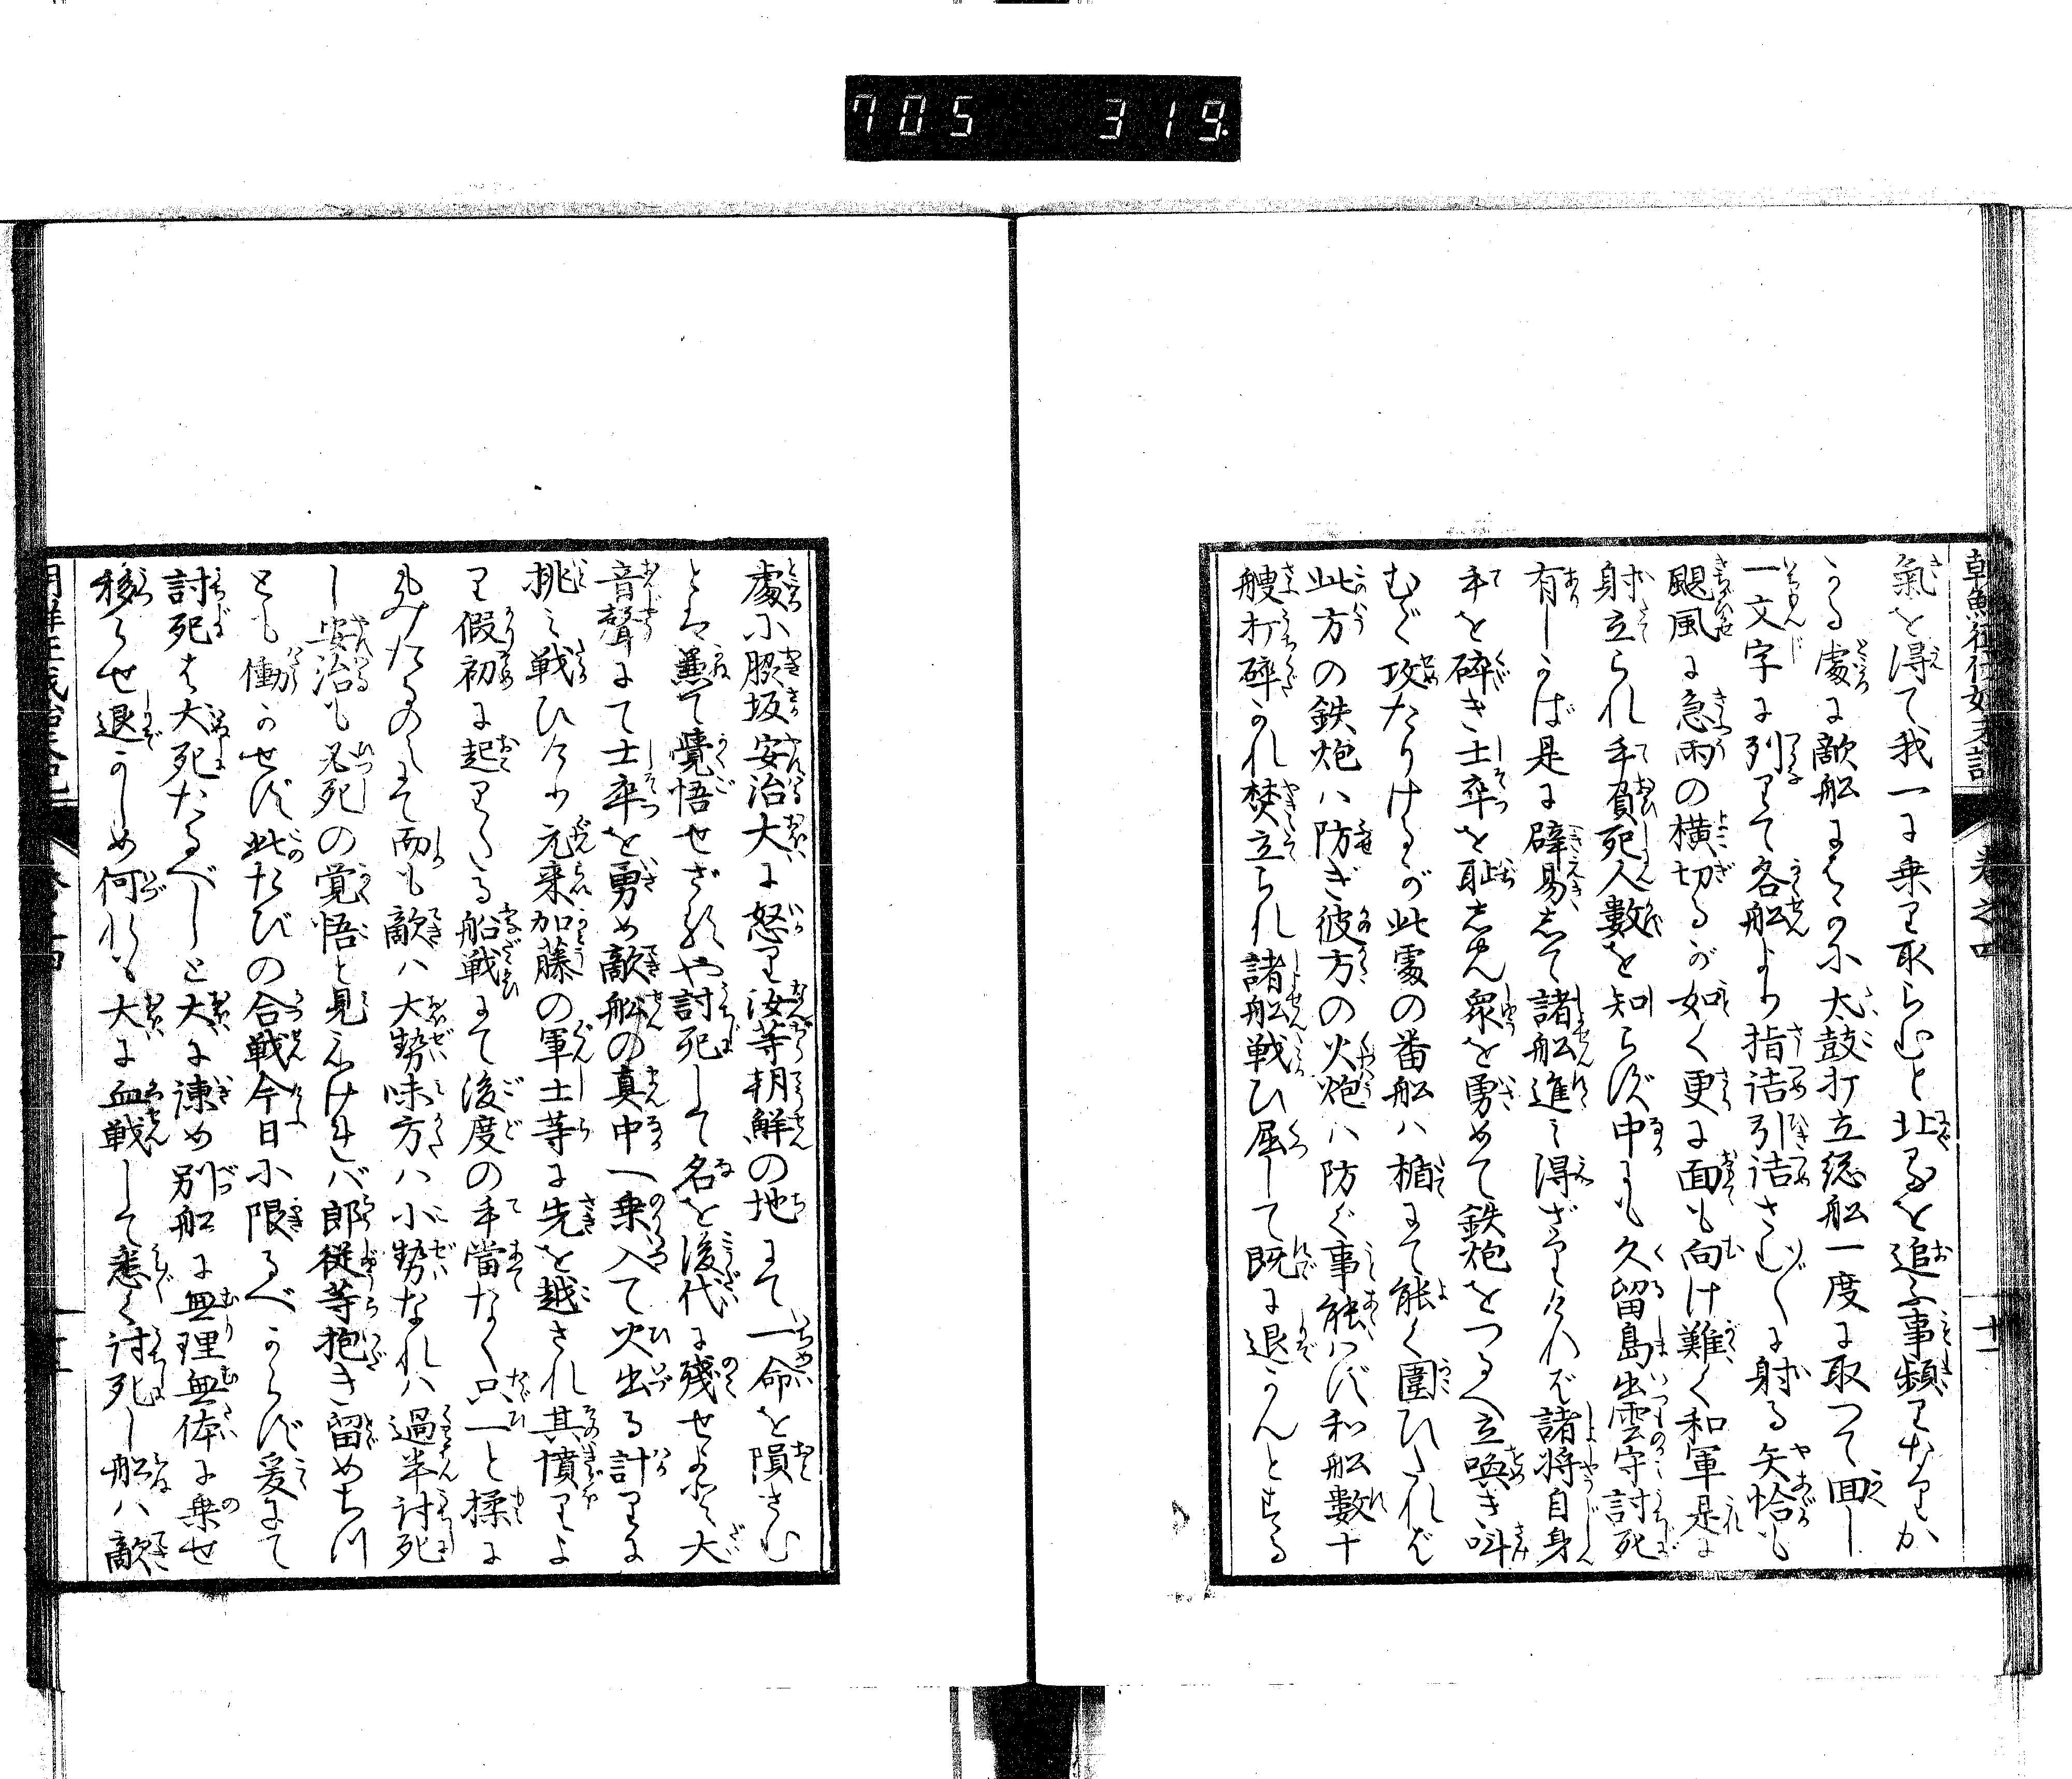 705 319
巻之四
十一
氣を得て我一に乗り取らむと北るを追ふ事頻りなりか
かる處に敵船にはかに太鼓打立総船一度に取つて回し
一文字に列りて各船より指詰引詰さむ〲に射る矢恰も
颶風に急雨の横切るが如く更に面も向け難く和軍是に
射立られ手負死人數を知らず中にも久留島出雲守討死
有しかば是に辟易して諸船進み得ざりければ諸將自身
手を碎き士卒を耻しめ衆を勇めて鉄炮をつるべ立喚き叫
むで攻たりけるが此處の番船ハ楯にて能く圍ひたれば
此方の鉄炮ハ防ぎ彼方の火炮ハ防ぐ事能はず和船數十
艘打碎かれ焚立られ諸船戦ひ屈して既に退かんとする
處に脇坂安治大に怒り汝等朝鮮の地にて一命を隕さむ
とは兼て覺悟せざるや討死して名を後代に殘せよと大
音聲にて士卒を勇め敵船の真中へ乗入て火出る計りに
挑み戦ひけり元来加藤の軍士等に先を越され其憤りよ
り假初に起りたる船戦にて後度の手當なく只一と揉に
もみたるのみにて而も敵ハ大勢味方ハ小勢なれハ過半討死
し安治も必死の覚悟と見えけれバ郎従等抱き留めちつ
とも働かせず此たびの合戦今日に限るべからず爰にて
討死は犬死たるべしと大に諫め別船に無理無体に乗せ
移らせ退かしめ何れも大に血戦して悉く討死し船ハ敵